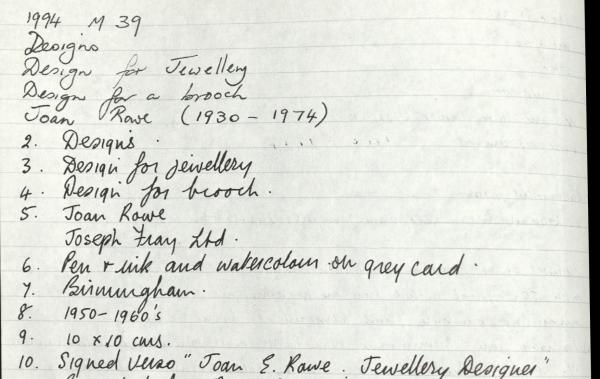 1994 M 39
Designs
Design for Jewellery
Design for a brooch
Joan Rowe (1930 - 1974)
2. Designs.
3. Design for jewellery
4. Design for brooch.
5. Joan Rowe
Joseph Fray Ltd.
6. Pen & ink and watercolour on grey card.
7. Birmingham.
8. 1950-1960's
9. 10 x 10 cms.
10. Signed verso "Joan E. Rowe. Jewellery Designer"